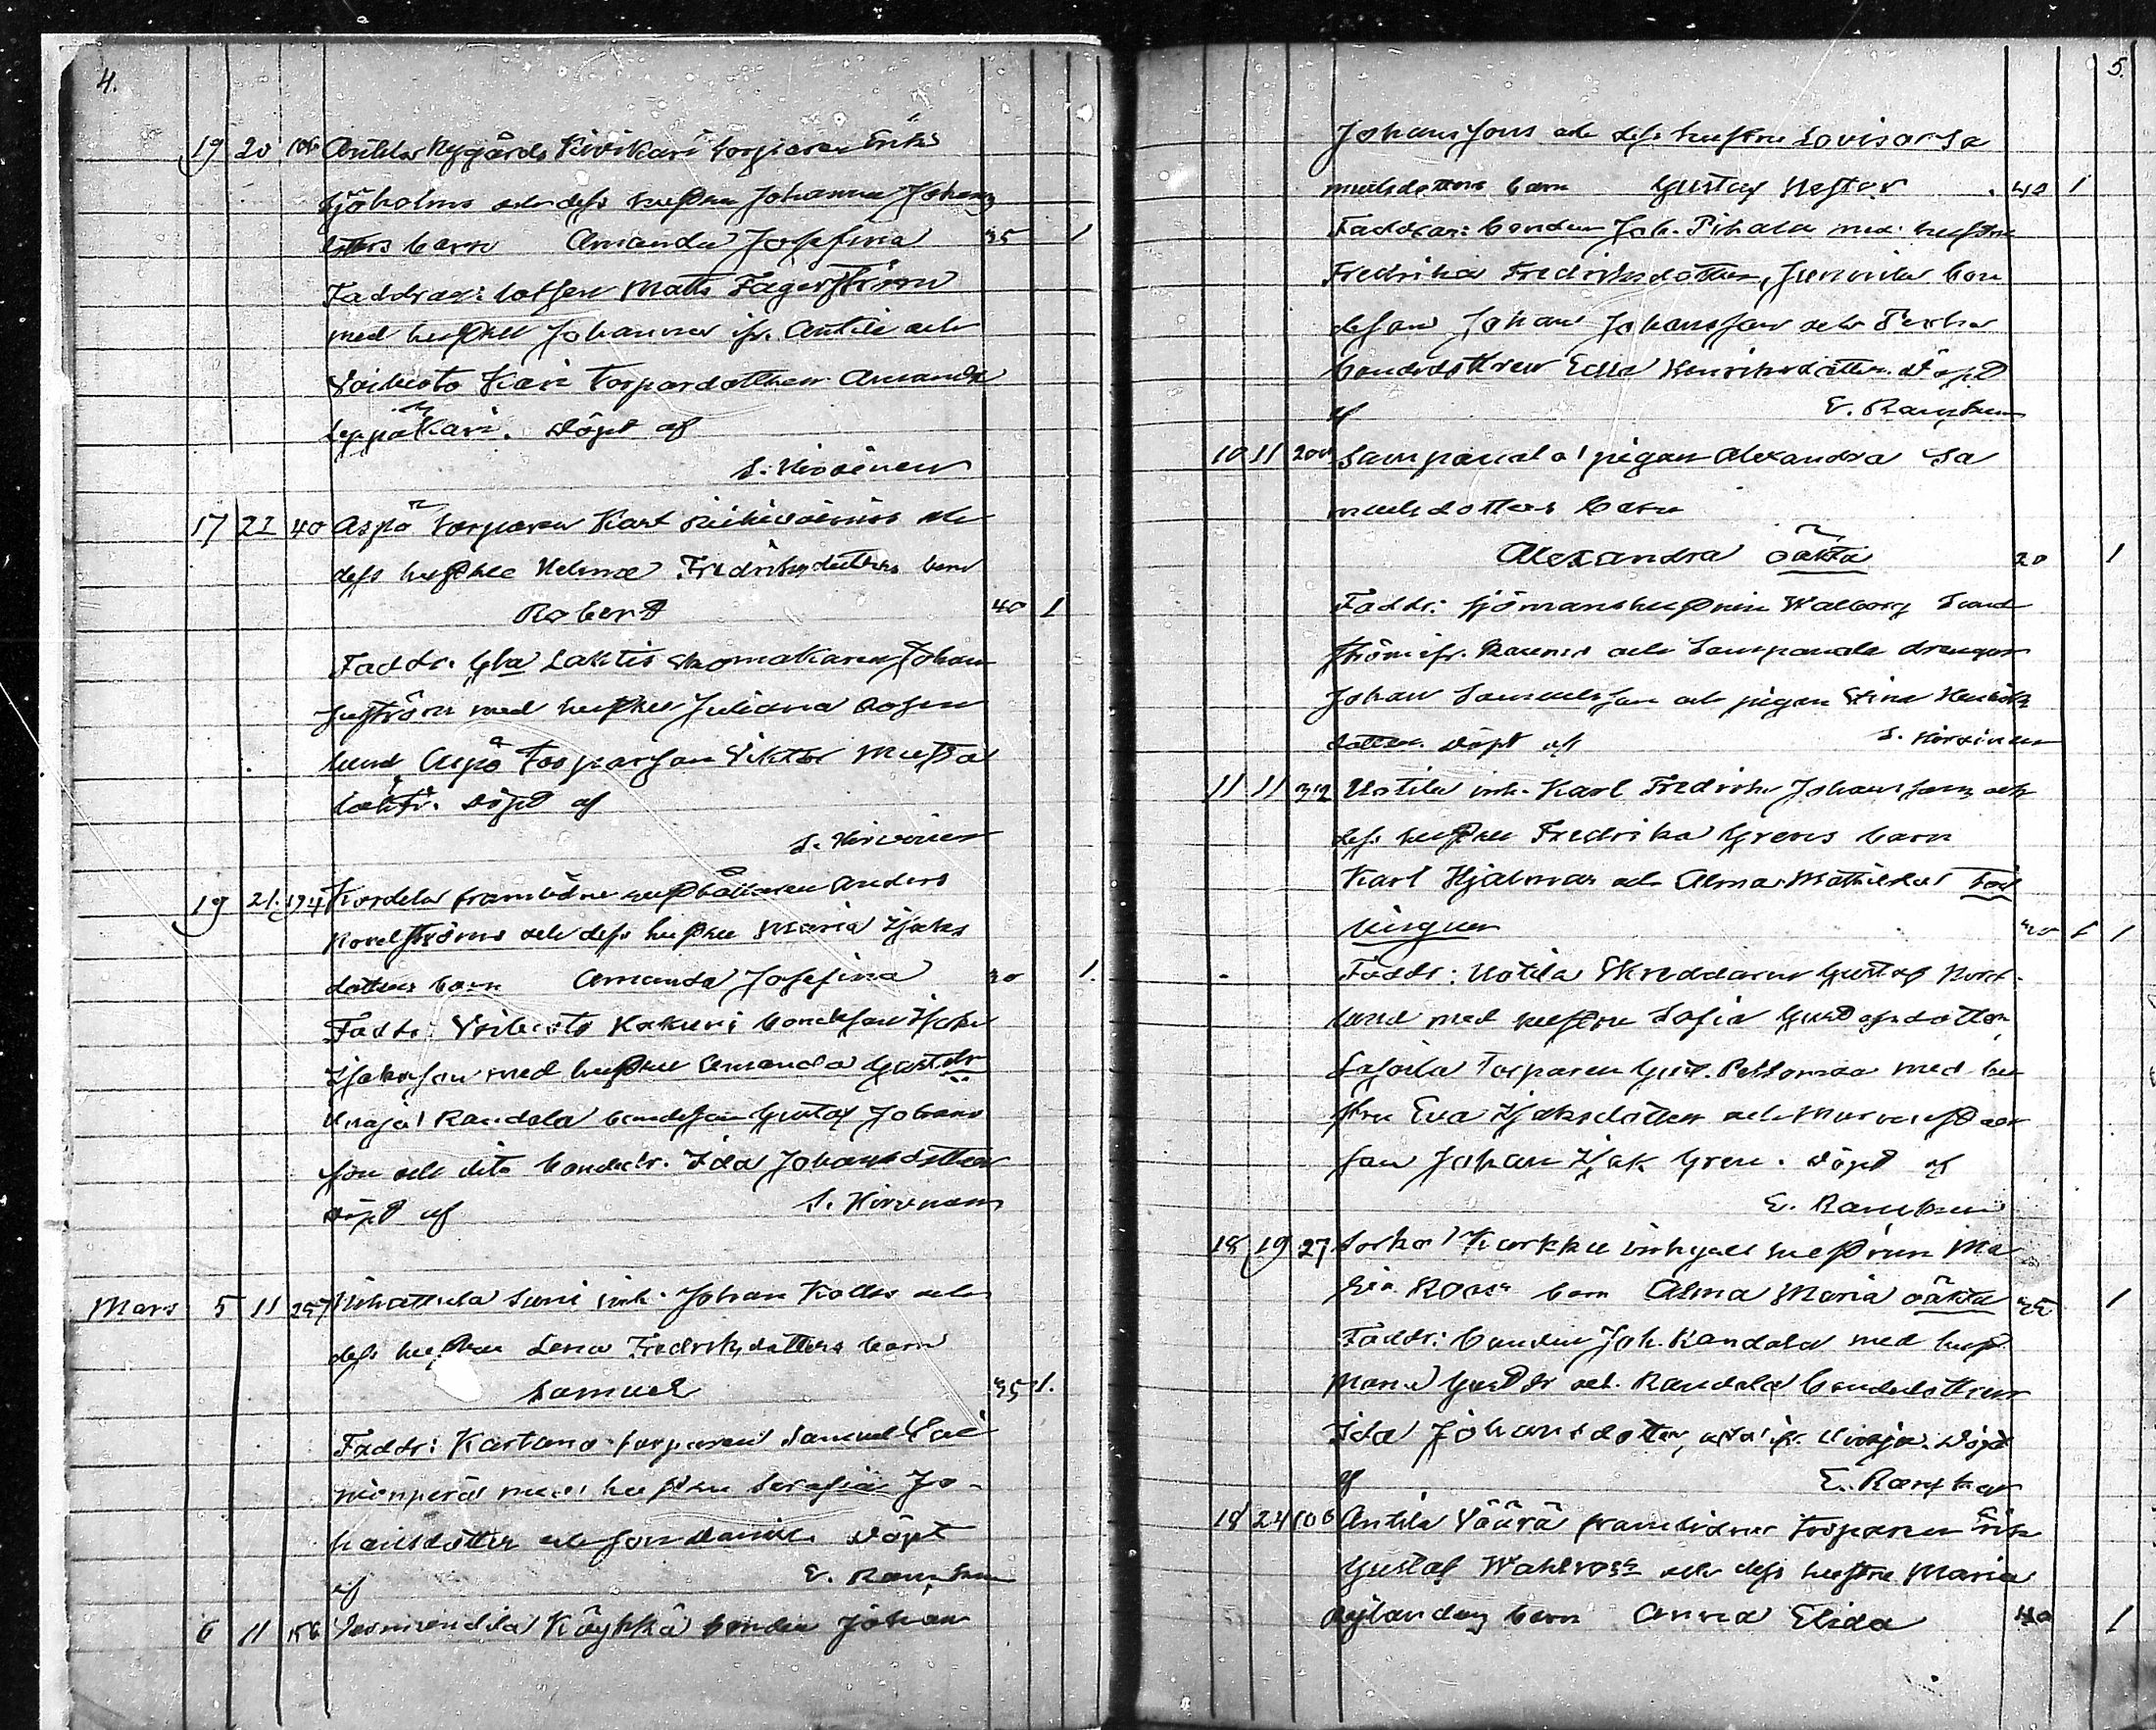 4.
19 20 106 Anttila Nygårds Kivikari torparen Erik
Sjöholms och dess hustru Johanna Johans
dotters barn Amanda Josefina 35 1
Faddrar: lotsen Matts Fagerström
med hustru Johanna ifr. Anttila och
Voiluoto Kari torpardottern Amanda
Leppäkari. Döpt af
S. Hirvinen
17 21 40 Aspö torparen Karl och
dess hustru Helena Fredriksdotters barn
Robert 40 1
Faddr. Gla Lahtis skomakaren Johan
med hustru Juliana
Aspö Torparson Viktor
Döpt af
S. Hirvinen
19 21. 194 Kordela framlidne Anders
Nordströms och dess hustru Maria Isaks
dotters barn Amanda Josefina 30 1.
Faddr: Voiluoto Kakkuri bondeson Isak
Isaksson med hustru Amanda Gust.dr
Unaja Randala bondeson Gustaf Johans
son och dito bondedr. Ida Johansdotter
Döpt af S. Hirvinen
Mars 5 11 257 Suni inh. Johan Kalls och
dess hustru Lena Fredriksdotters barn
Samuel 35 1.
Faddr: Kartano torparen Samuel
med hustru Serafia Jo-
hansdotter och son Daniel. Döpt
af E.
6 11 156 Köykkä bonden Johan
5.
Johanssons och dess hustru Lovisa Sa
muelsdotters barn Gustaf Nestor 40 1
Faddrar: bonden Joh. Pihala med hustru
Fredrika Fredriksdotter, bon
deson Johan Johansson och
bondedottren Edla Henriksdotter. Döpt
af E.
10 11 200 Sampaanala pigan Alexandra Sa
muelsdotters barn
Alexandra oäkta 20 1
Faddr: sjömanshustrun Walborg Sund
ström ifr. Raumo och Sampaanala drengen
Johan Samuelsson och pigan Stina Henriks
dotter. Döpt af S. Hirvinen
11 11 32 Uotila inh. Karl Fredrik Johanssons och
dess hustru Fredrika Grens barn
Karl Hjalmar och Alma Mathilda tvil
lingar 1 1
Faddr: Uotila Skreddaren Gustaf Nord-
lund med hustru Sofia Gustafsdotter
torparen Gust. Peltomaa med hu
stru Eva Isaksdotter och
son Johan Isak Gren. Döpt af
E.
18 19 27 Sorkka Kurkku inhyses hustrun Ma
ria Roos barn Alma Maria oäkta 35 1
Faddr: bonden Joh. Randala med hust.
Maria Gust.dr och Randala bondedottren
Ida Johansdotter, alla ifr. Unaja. Döpt
af E.
18 24 106 Anttila Väärä framlidne torparen Erik
Gustaf Wahlroos och dess hustru Maria
Nylanders barn Anna Elida 40 1